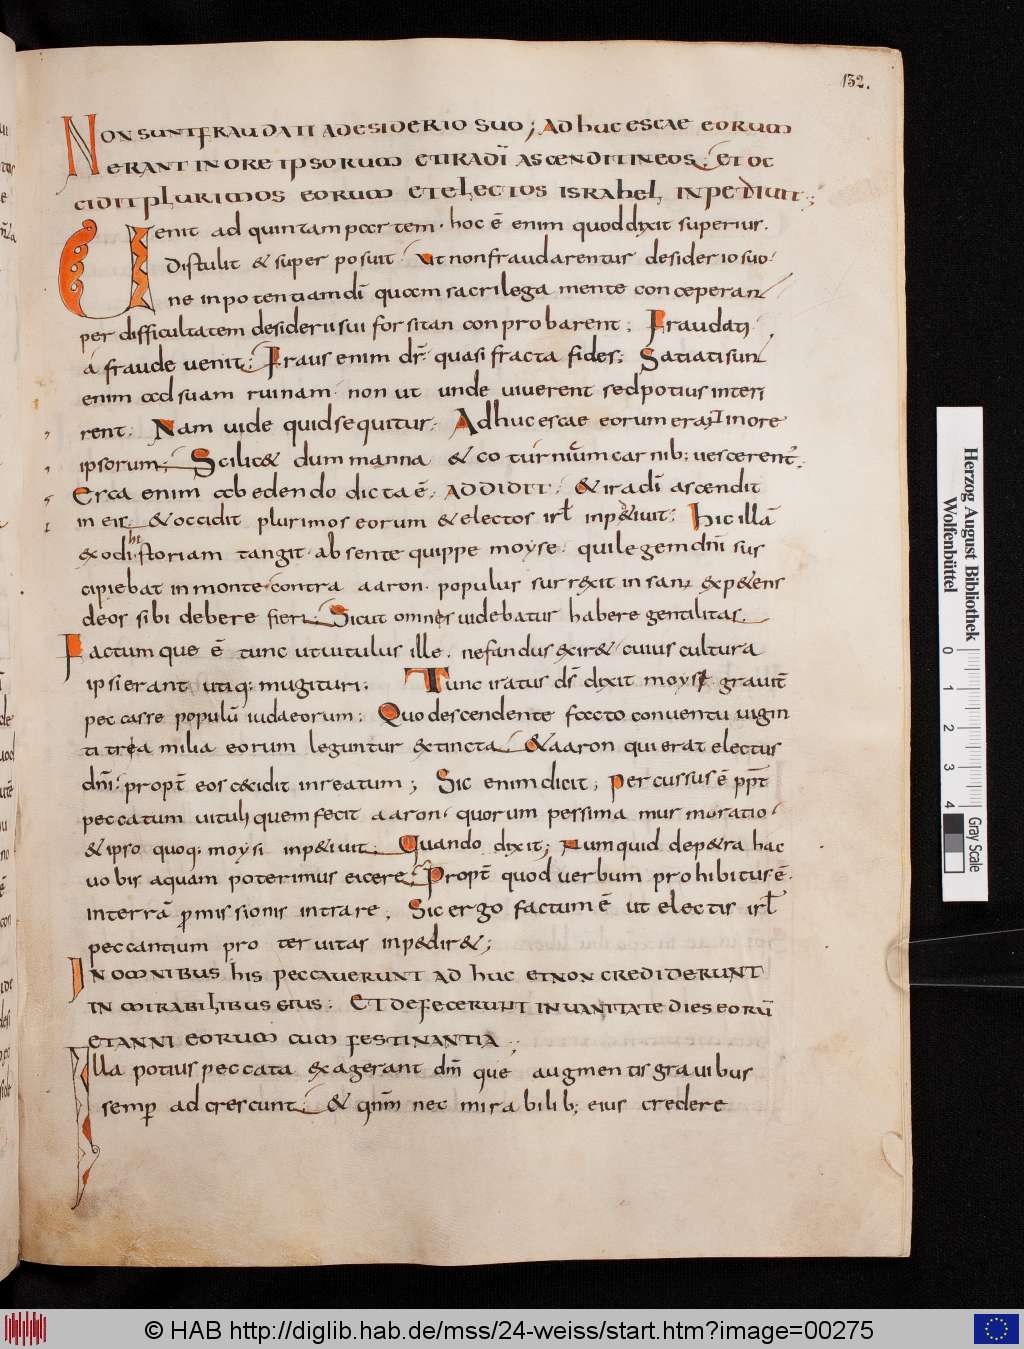 132.
NON SUNT FRAUDATI A DESIDERIO SUO; ADHUC ESCAE EORUM
ERANT IN ORE IPSORUM ET IRA DĪ ASCENDIT IN EOS; ET OC
CIDIT PLURIMOS EORUM ET ELECTOS ISRAHEL INPEDIVIT;
Uenit ad quintam partem. hoc ē enim quod dixit superius.
Distulit & superposuit. Ut non fraudarentur desiderio suo.
ne in potentiam dī quam sacrilega mente conceperant
per difficultatem desiderii sui forsitan conprobarent; Fraudati
a fraude uenit; Fraus enim dr̄ quasi fracta fides; Satiati sunt
enim ad suam ruinam. non ut unde uiuerent sed potius interi
rent; Nam uide quid sequitur; Adhuc escae eorum erant in ore
ipsorum; Scilic& dum manna & coturnicum carnib; uescerent̄.
Erca enim ab edendo dicta ē; ADDIDIT; & ira dī ascendit
in eis; & occidit plurimos eorum & electos irl̄ inp&iuit; Hic illā
exodi historiam tangit. absente quippe moyse. qui legem dn̄i sus
cipiebat in monte. contra aaron. populus surrexit insanus exp&ens
deos sibi debere fieri; Sicut omnes uidebatur habere gentilitas.
Factumque ē tunc ut uitulus ille. nefandus exir& cuius cultura
ipsi erant utiq; mugituri; Tunc iratus ds̄ dixit moysi grauit̄
peccasse populū iudaeorum; Quo descendente facto conuentu uigin
ti trea milia eorum leguntur extincta; & aaron qui erat electus
dn̄i. propt̄ eos cecidit in reatum; Sic enim dicit; Percussus ē ppt̄
peccatum uituli quem fecit aaron. quorum pessima murmuratio.
& ipso quoq; moysi inp&iuit; Quando dixit; Numquid de p&ra hac
uobis aquam poterimus eicere; Propt̄ quod uerbum prohibitus ē.
in terrā p̄missionis intrare. Sic ergo factum ē ut electis irl̄
peccantium proteruitas inp&dir&;
IN OMNIBUS HIS PECCAUERUNT ADHUC ET NON CREDIDERUNT
IN MIRABILIBUS EIUS; ET DEFECERUNT IN UANITATE DIES EORŪ
ET ANNI EORUM CUM FESTINANTIA;
Illa potius peccata exagerant dn̄m que augmentis grauibus
semp̄ adcrescunt; & qn̄m nec mirabilib; eius credere
Herzog August Bibliothek
Wolfenbüttel
0 1 2 3 4
Gray Scale
© HAB http://diglib.hab.de/mss/24-weiss/start.htm?image=00275